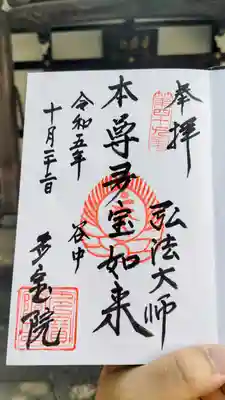 奉拝
弘法大師
本尊多宝如来
谷中
令和五年
十月二十二日
多宝院